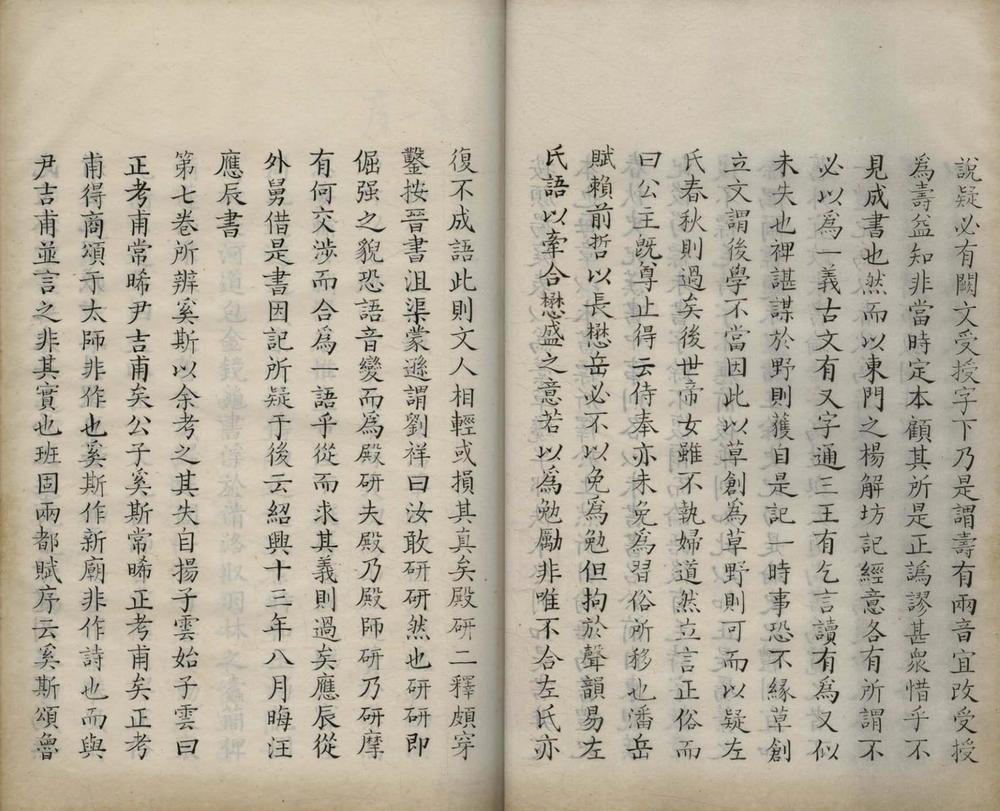 說疑必有闕文受授字下乃是謂壽有兩音宜改受授
為壽益知非當時定本顧其所是正譌謬甚衆惜乎不
見成書也然而以東門之楊解坊記經意各有所謂不
必以為一義古文有又字通三王有乞言讀有為又似
未失也裨諶謀於野則獲自是記一時事恐不緣草創
立文謂後學不當因此以草創為草野則可而以疑左
氏春秋則過矣後世帝女雖不執婦道然立言正俗而
曰公主既尊止得云侍奉亦未免為習俗所移也潘岳
賦賴前哲以長懋岳必不以免為勉但拘於聲韻易左
氏語以牽合懋盛之意若以為勉勵非唯不合左氏亦
復不成語此則文人相輕或損其真矣殿研二釋頗穿
鑿按晉書沮渠蒙遜謂劉祥曰汝敢研研然也研研即
倔强之貌恐語音變而為殿研夫殿乃殿師研乃研摩
有何交涉而合為一語乎從而求其義則過矣應辰從
外舅借是書因記所疑于後云紹興十三年八月晦汪
應辰書
第七卷所辨奚斯以余考之其失自揚子雲始子雲曰
正考甫常晞尹吉甫矣公子奚斯常晞正考甫矣正考
甫得商頌于太師非作也奚斯作新廟非作詩也而與
尹吉甫並言之非其實也班固兩都賦序云奚斯頌魯